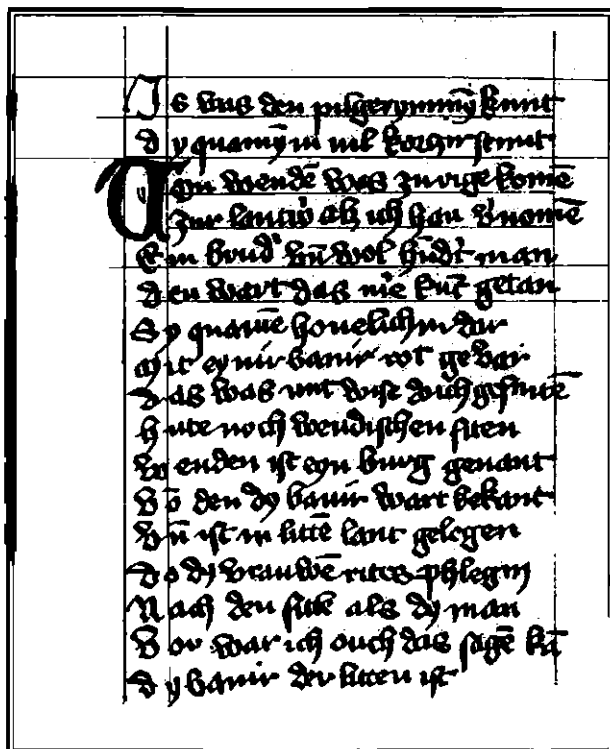 Is was den pilgerynnnȳ kunt
dy quamȳ in uil korcʒir stunt
Von wendē was zu rige komē
Zur lantw̓ alz ich han v̓nomē
Ein brud̓ vn̄ wol hūdt̓ man
den wart das me̓ kūt getan
Sy quamē houelichin dar
Mit eynir banir rot gevar
das was mit wise dv̓ch gesnitē
hute noch wendischen siten
Wenden ist eyn burg genant
vō den dy banir wart bekant
vn̄ ist in littē lant gelegen
do dy vrauwē rites phlegin
Nach den sittē als dy man
Vor war ich ouch das sagē kā
dy banir der litten ist